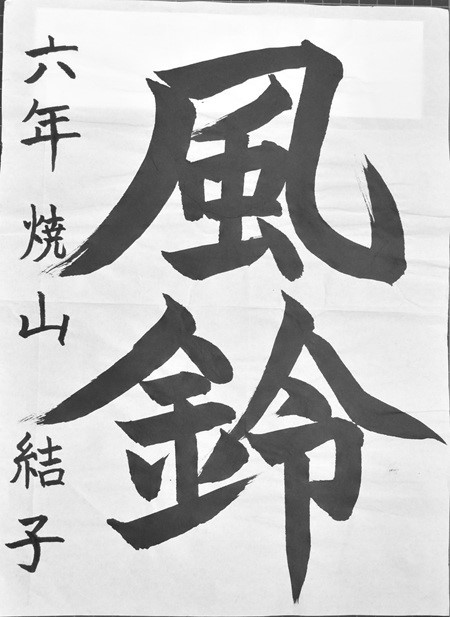 風鈴
六年 焼山 結子